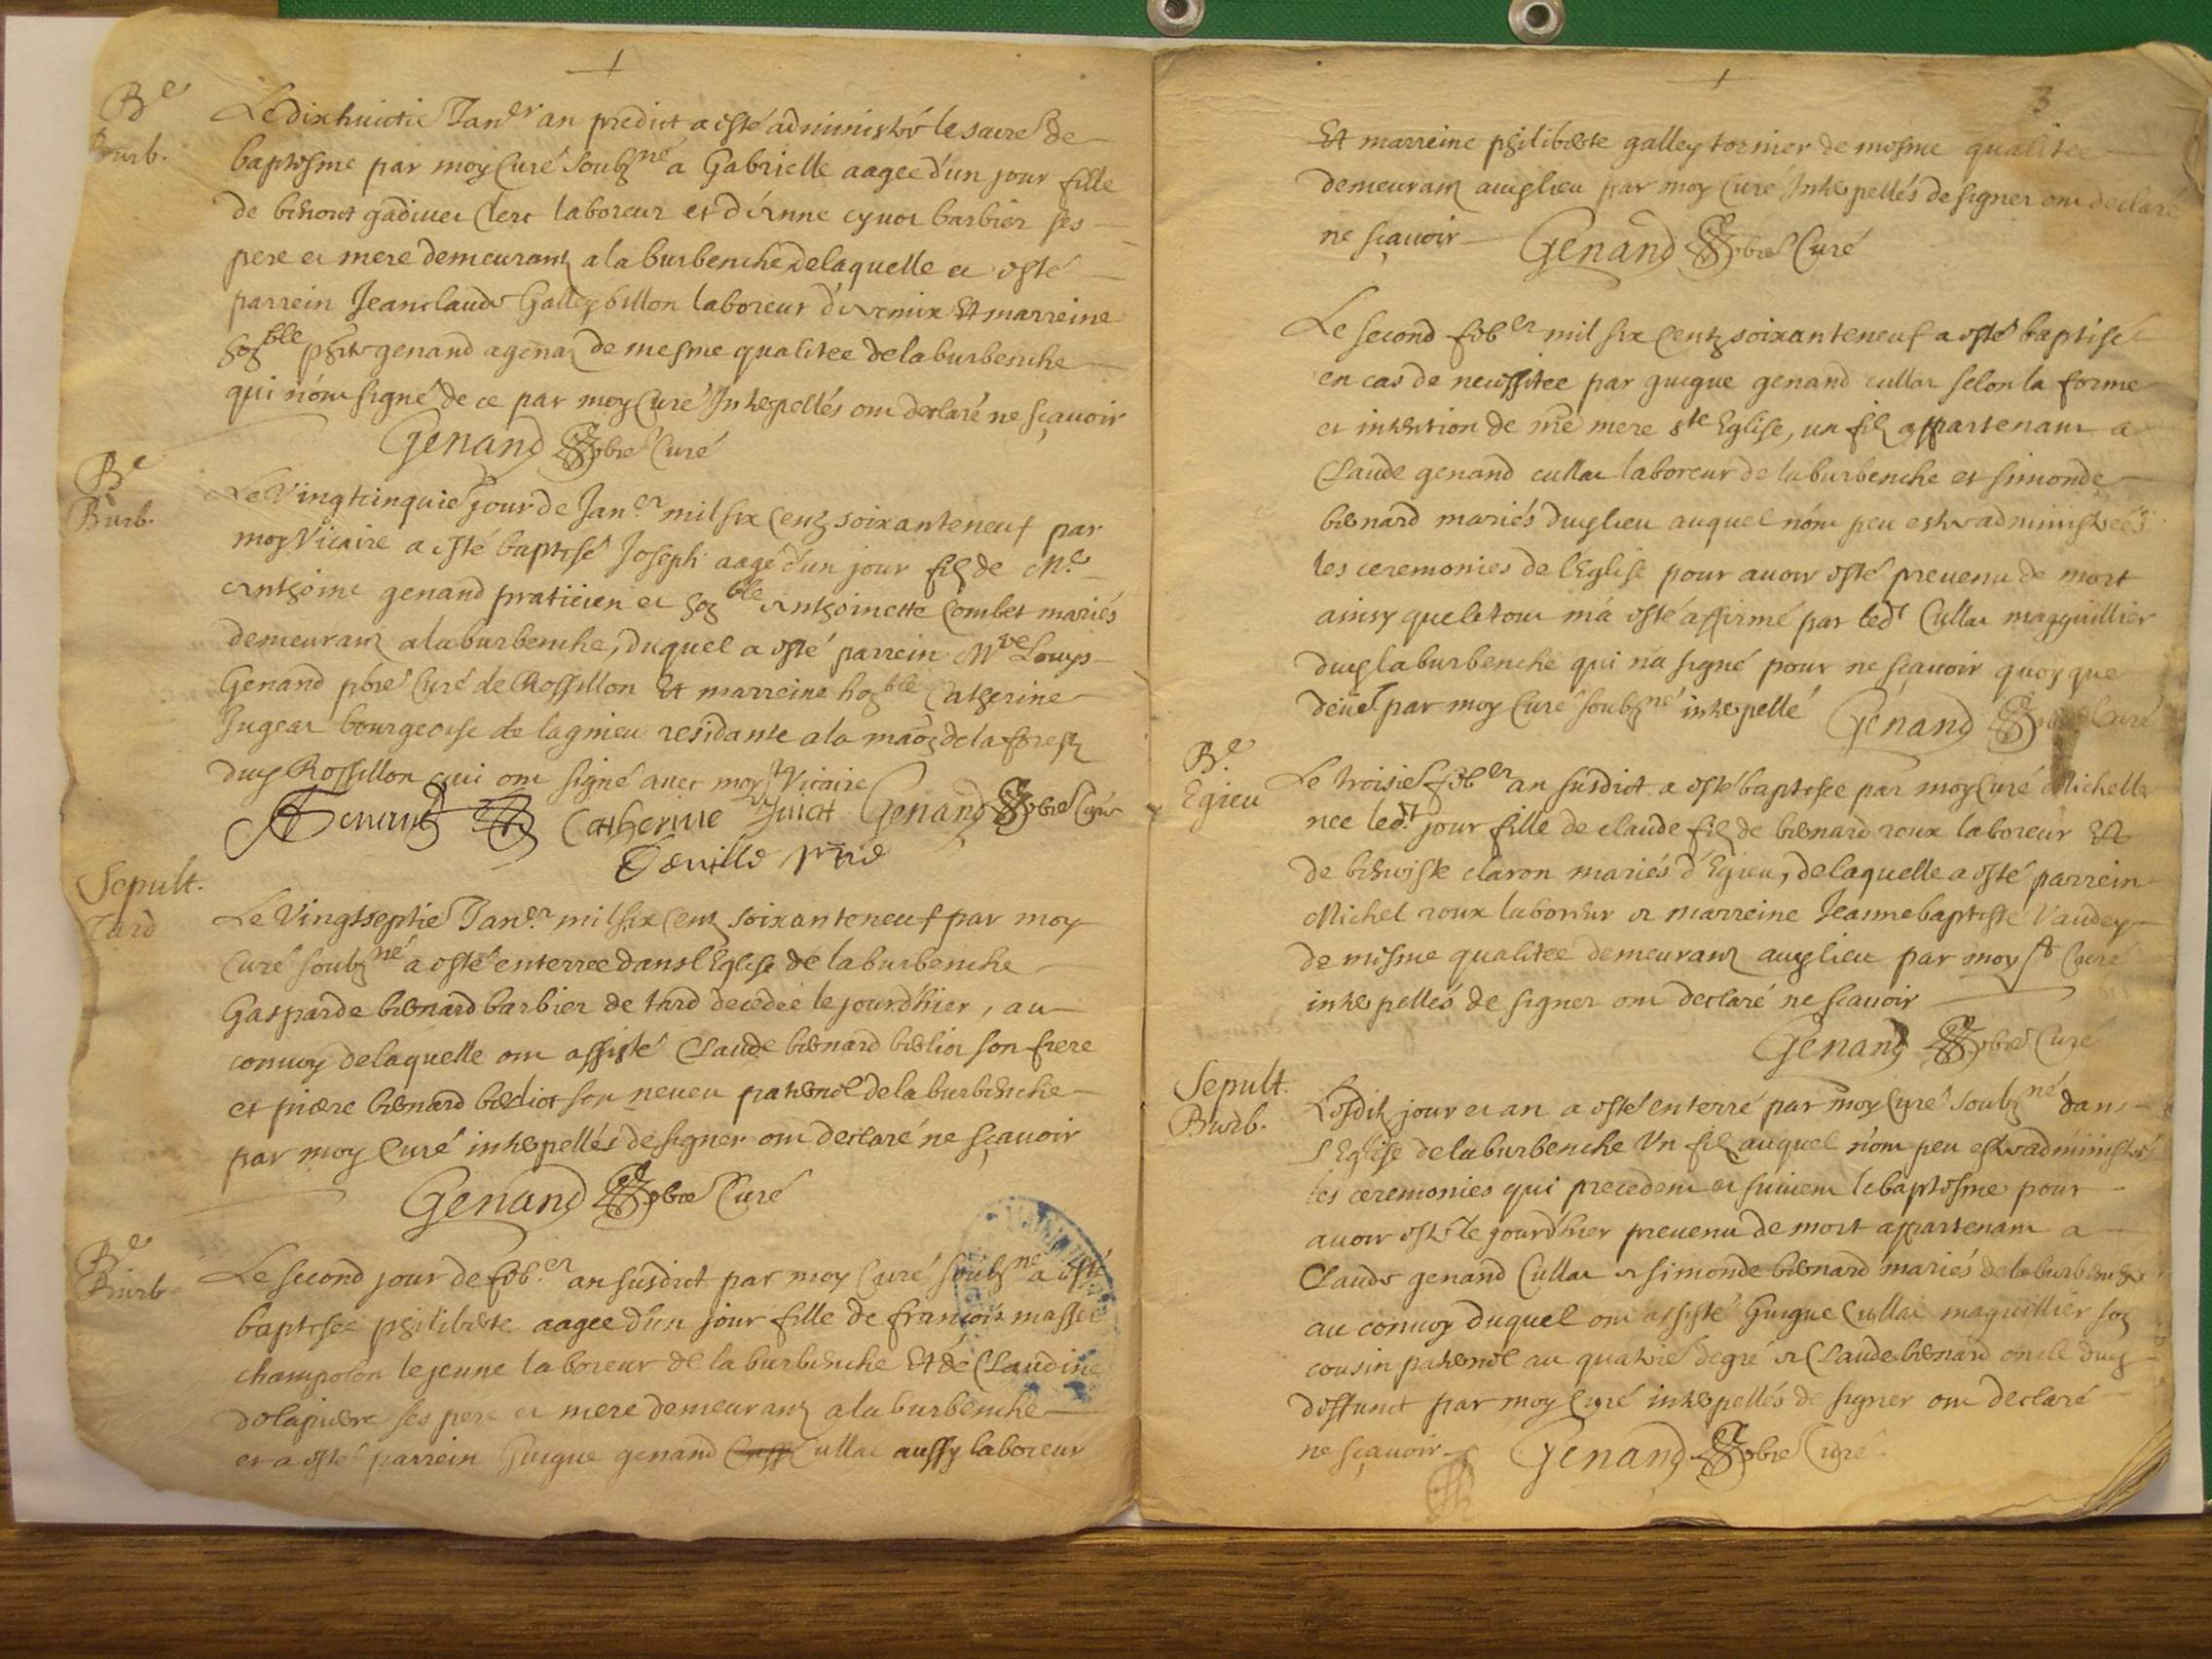 Be
Burb.
Le dixhuictie Janer an predict a esté administré le sacre de
baptesme par moy Curé soubzné a Gabrielle aagee d'un jour fille
de benoit gadiuer Clerc laboreur et d'Anne cynor barbier ses
pere et mere demeurantz a la burbenche, de laquelle a esté
parrein Jeanclaude Galley billon laboreur Et marreine
hoble genand de mesme qualitee de la burbenche
qui n'ont signé de ce par moy Curé Interpellés ont declaré ne sçavoir
Genand pbre Curé
Be
Burb.
Le Vingtcinquie jour de Janer mil six centz soixanteneuf par
moy Vicaire a esté baptisé Joseph aagé d'un jour filz de Me
Anthoine genand praticien et hoble Anthoinette Combet mariés
demeurantz a la burbenche, duquel a esté parrein Mre Louys
Genand pbre Curé de Rossillon Et marreine hoble Catherine
Jugeat bourgeoise de lagnieu residante a la maõz de la forestz
dud Rossillon qui ont signé avec moy st Vicaire
Genand Catherine Genand pbre Curé
Sepult.
Tard
Le Vingtseptie Janer mil six centz soixanteneuf par moy
Curé soubzné a esté enterree dans l'Eglise de la burbenche
Gasparde bernard barbier de tard decedée le jourdhier, au
convoy de laquelle ont assisté Claude bernard berliot son frere
et pierre bernard berliot son neveu paternel de la burbenche
par moy Curé interpellés de signer ont declaré ne sçavoir
Genand pbre Curé
Be
Burb
Le second jour de feber an susdict par moy Curé soubzné a esté
baptisee philiberte aagee d'un jour fille de françois massot
champolon le jeune laboreur de la burbenche Et de Claudine
delapierre ses pere et mere demeurantz a la burbenche
et a esté parrein Guigue genand Cullat aussy laboreur
3
Et marreine philiberte galley tornier de mesme qualitee
demeurantz audlieu par moy Curé Interpellés de signer ont declaré
ne sçavoir Genand pbre Curé
Le second feber mil six centz soixanteneuf a esté baptisé
en cas de necessitee par guigue genand cullat selon la forme
et intention de nre mere ste Eglise, un filz appartenant a
Claude genand cullat laboreur de la burbenche et simonde
bernard mariés dudlieu auquel n'ont peu estre administrées
les ceremonies de l'Eglise pour avoir esté prevenu de mort
ainsy que le tout m'a esté affirmé par ledt Cullat magguillier
dud la burbenche qui n'a signé pour ne sçavoir quoy que
par moy Curé soubzné interpellé Genand pbre Curé
Be
Egieu
Le troisie feber an susdict a esté baptisee par moy Curé Michelle
nee ledt jour fille de claude filz de bernard roux laboreur Et
de benoiste claron mariés d'Egieu, de laquelle a esté parrein
Michel roux laboreur et marreine Jeannebaptiste Vaudey
de mesme qualitee demeurantz audlieu par moy st Curé
interpellés de signer ont declaré ne sçavoir
Genand pbre Curé
Sepult.
Burb.
Lesditz jour et an a esté enterré par moy Curé soubzné dans
l'Eglise de la burbenche Un filz auquel n'ont peu estre administré
les ceremonies qui precedent et suivent le baptesme pour
avoir esté le jourdhier prevenu de mort appartenant a
Claude genand Cullat et simonde bernard mariés de la burbenche
au convoy duquel ont assisté Guigue Cullat maguillier soz
cousin paternel au quatrie degré et Claude bernard oncle dud
deffunct par moy Curé interpellés de signer ont declaré
ne sçavoir Genand pbre Curé